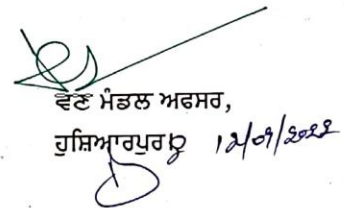 ਵਣ ਮੰਡਲ ਅਫਸਰ,
ਹੁਸ਼ਿਆਰਪੁਰ। 12/09/2022